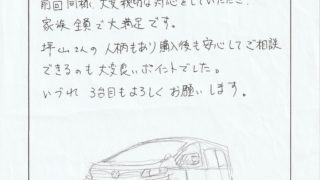 前回同様、大変親切な対応をしていただき、
家族全員で大満足です。
坪山さんの人柄もあり購入後も安心してご相談
できるのも大変良いポイントでした。
いづれ3台目もよろしくお願いします。